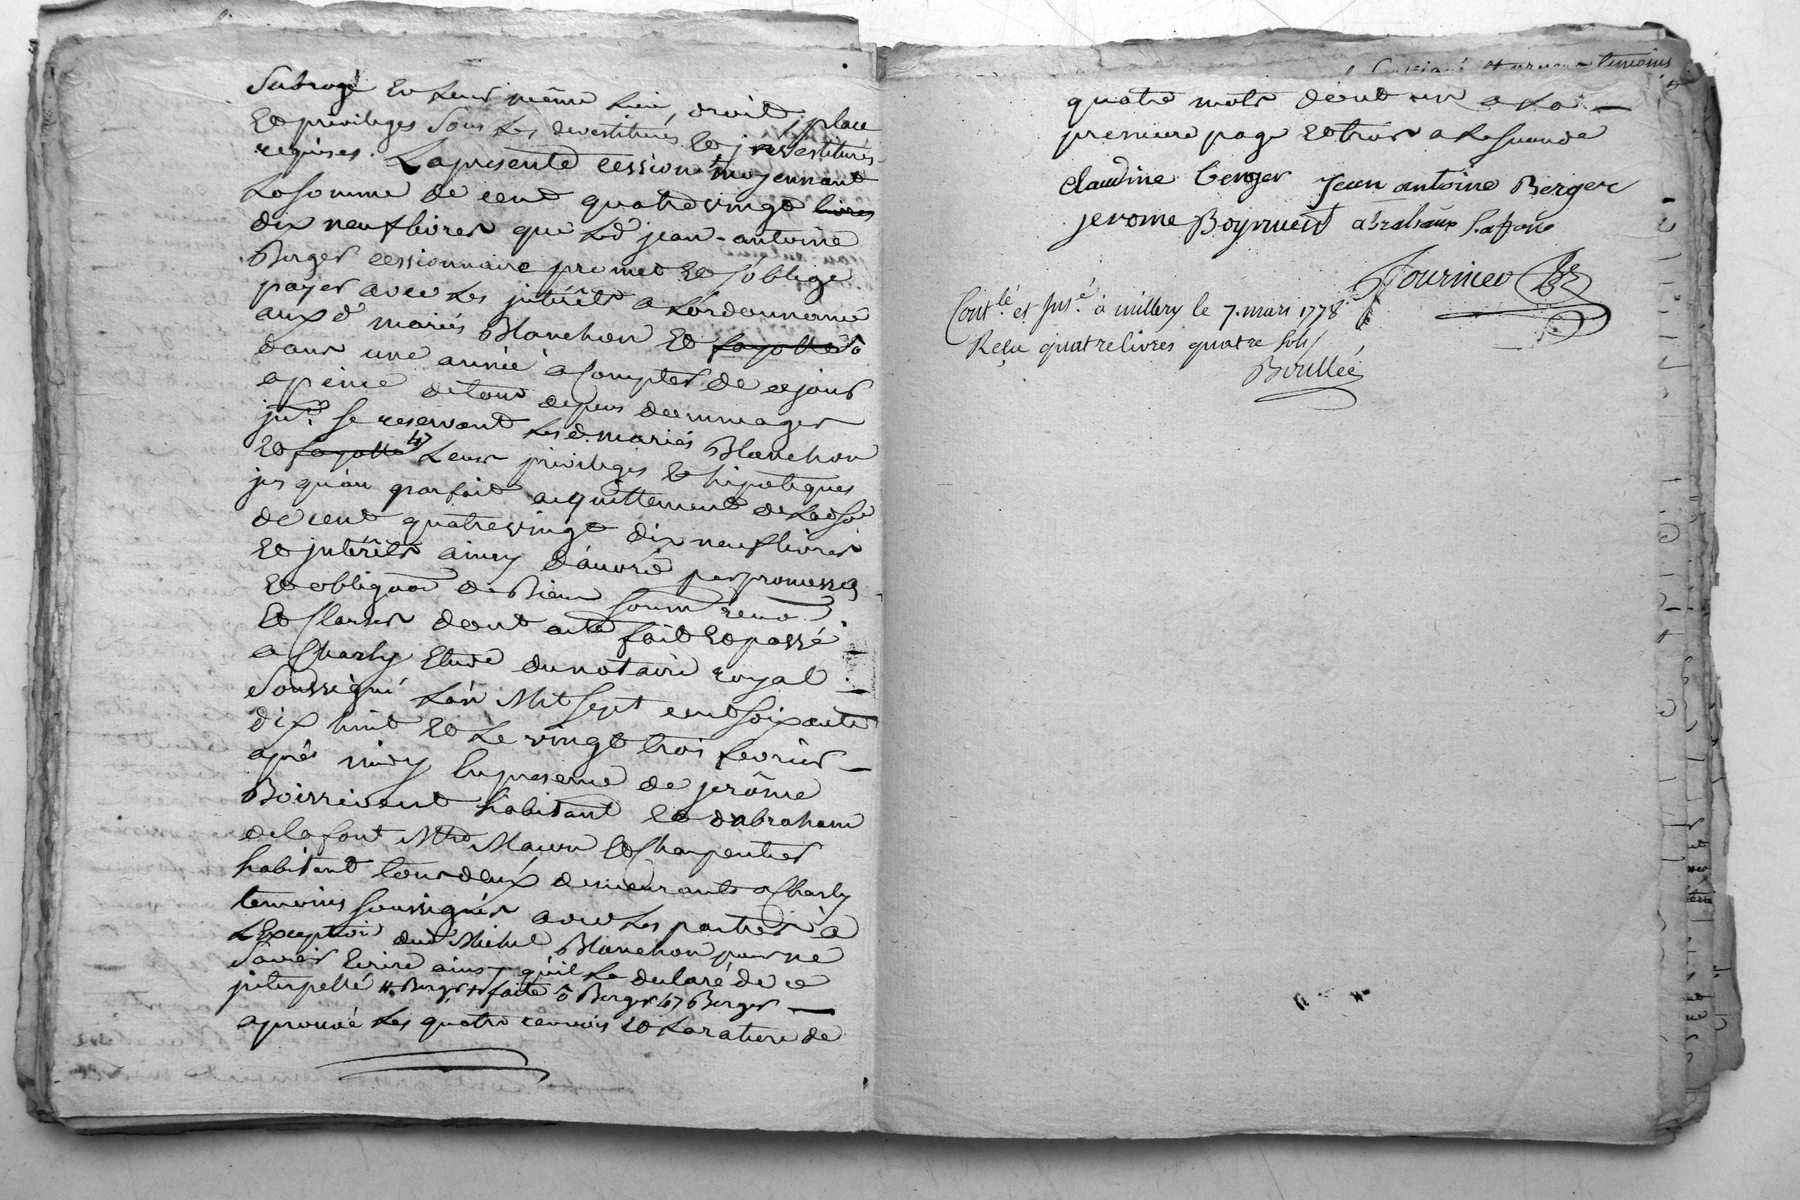 Subrogé en Leur même Lieu, droit, place
et privileges sous Les devestitures et investitures
requises. La presente cession moyennant
La somme de cent quatre vingt livres
dix neuf livres que Led jean-antoine
Berger cessionnaire promet et s'oblige
payer avec Les jntérêts a Lordonnance
aux d mariés Blanchon et fayolle ô
dans une année à Compter de ce jour
a peine de tous depens dommages
jnts. se reservant Les d. mariés Blanchon
et fayolle Leurs privileges et hipoteques
jusqu'au parfait acquittement de Lad. so.
de cent quatre vingt dix neuf livres
et jntérêts ainsy d'acord par promesses
et obligaōn de Biens soum renōn
et Clauses dont acte fait et passé
a Charly Etude du notaire royal
soussigné Lan Mil Sept cent soixante
dix huit et Le vingt trois fevrier
après midy En presence de jerôme
Boissivent habitant et d'abraham
delafont Mtre Macon et Charpentier
habitant tous deux demeurants a Charly
temoins soussignés avec Les parties à
L'exception dud Michel Blanchon pour ne
savoir Ecrire ainsy qu'il La declaré de ce
jnterpellé #. Berger + faite ô Berger Berger
aprouvé Les quatre renvois et La rature de
temoins
quatre mots dont un a La
premiere page et trois a La seconde
Claudine berger jean antoine Berger
jerome Boyrivent abraham Lafont
Fournier
Contlé. et Insé. à millery le 7. mars 1778
Reçu quatre livres quatre sols
Boullée